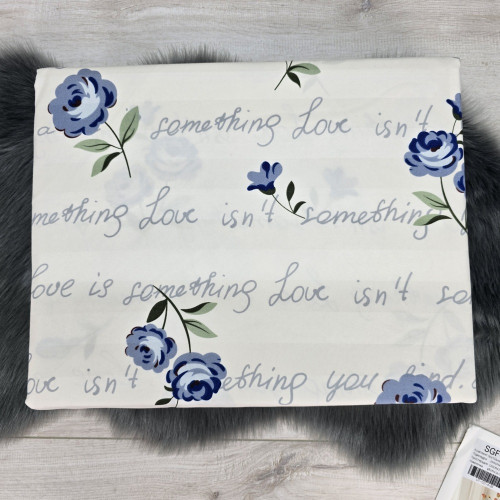 a is something Love isn't
mething Love isn't something
ove is something Love isn't so
ove isn't ething you find.
SGF